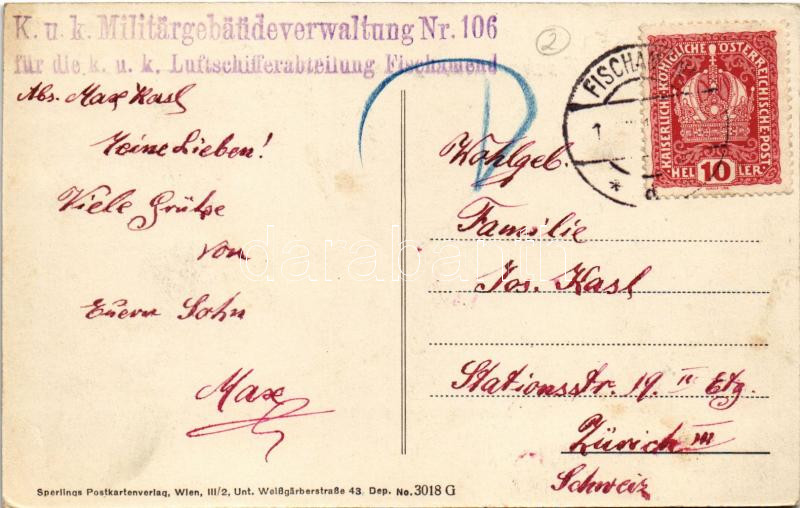 K. u. k. Militärgebäudeverwaltung Nr. 106
für die k. u. k. Luftschifferabteilung Fischamend
2
FISCHAM
1
KAISERLICHE KÖNIGLICHE ÖSTERREICHISCHE POST
HEL 10 LER
Abs. Max Kasl
Meine Lieben!
Viele Grüße
von
Euern Sohn
Max
Wohlgeb.
Familie
Jos. Kasl
Stationsstr. 19. IV Etg.
Zürich III
Schweiz
darabanth
Sperlings Postkartenverlag, Wien, III/2, Unt. Weißgärberstraße 43. Dep. No. 3018 G